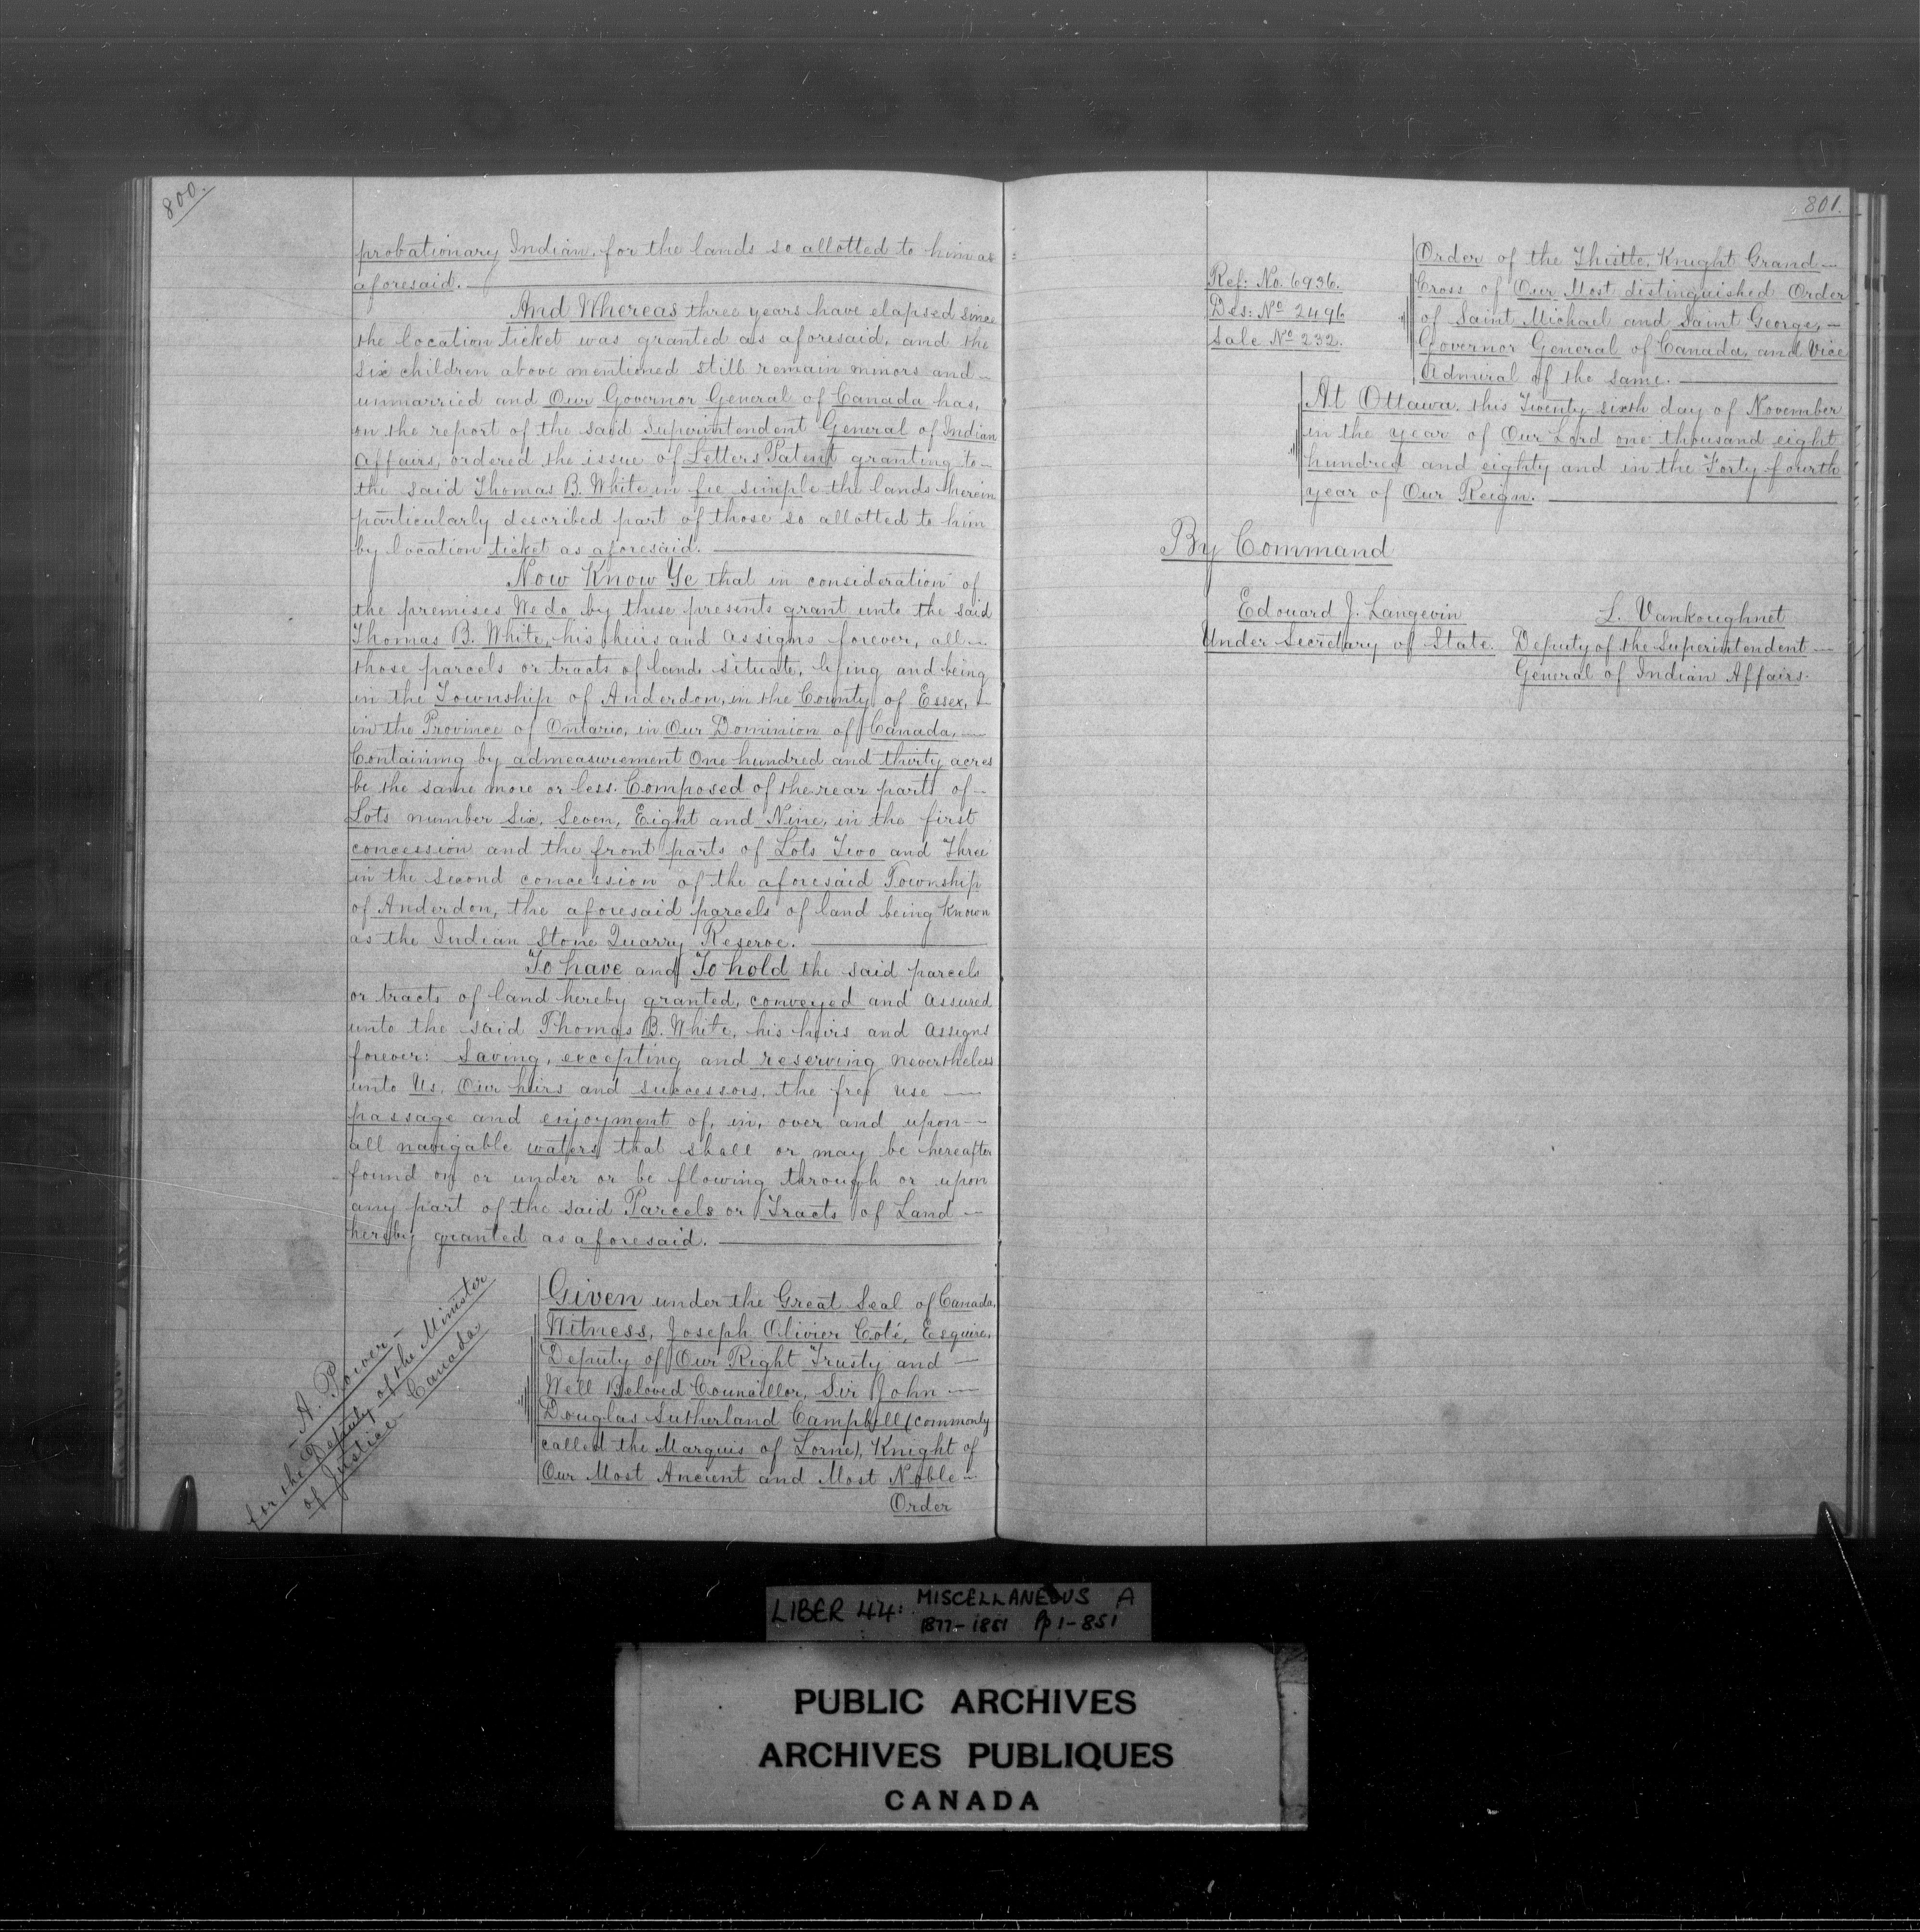 800.
probationary Indian, for the lands so allotted to him as
aforesaid.
And Whereas three years have elapsed since
the location ticket was granted as aforesaid, and the
six children above mentioned still remain minors and
unmarried and Our Governor General of Canada has,
on the report of the said Superintendent General of Indian
Affairs, ordered the issue of Letters Patent granting to
the said Thomas B. White in fee simple the lands herein
particularly described part of those so allotted to him
by location ticket as aforesaid.
Now Know Ye that in consideration of
the premises We do by these presents grant unto the said
Thomas B. White, his heirs and assigns forever, all
those parcels or tracts of land situate, lying and being
in the Township of Anderdon, in the County of Essex,
in the Province of Ontario, in Our Dominion of Canada,
Containing by admeasurement One hundred and thirty acres
be the same more or less. Composed of the rear parts of
Lots number Six, Seven, Eight and Nine, in the first
concession and the front parts of Lots Two and Three
in the Second concession of the aforesaid Township
of Anderdon, the aforesaid parcels of land being known
as the Indian Stone Quarry Reserve.
To have and To hold the said parcels
or tracts of land hereby granted, conveyed and assured
unto the said Thomas B. White, his heirs and assigns
forever: Saving, excepting and reserving nevertheless
unto Us, Our heirs and successors, the free use
passage and enjoyment of, in, over and upon
all navigable waters that shall or may be hereafter
found on or under or be flowing through or upon
any part of the said Parcels or Tracts of Land
hereby granted as aforesaid.
A. Power
for the Deputy of the Minister
of Justice Canada
Given under the Great Seal of Canada,
Witness, Joseph Olivier Coté, Esquire,
Deputy of Our Right Trusty and
Well Beloved Councillor, Sir John
Douglas Sutherland Campbell (commonly
called the Marquis of Lorne), Knight of
Our Most Ancient and Most Noble
Order
801.
Order of the Thistle, Knight Grand
Cross of Our Most distinguished Order
of Saint Michael and Saint George,
Governor General of Canada, and Vice
Admiral of the same.
Ref: No. 6936.
Des: No 2496
Sale No 232.
At Ottawa, this Twenty sixth day of November
in the year of Our Lord one thousand eight
hundred and eighty and in the Forty fourth
year of Our Reign.
By Command
Edouard J. Langevin
Under Secretary of State.
L. Vankoughnet
Deputy of the Superintendent
General of Indian Affairs.
LIBER 44: MISCELLANEOUS A
1877-1881 Pp 1-851
PUBLIC ARCHIVES
ARCHIVES PUBLIQUES
CANADA